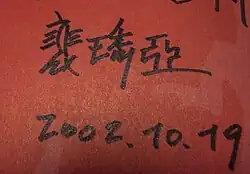 裴瑀亞
2002.10.19